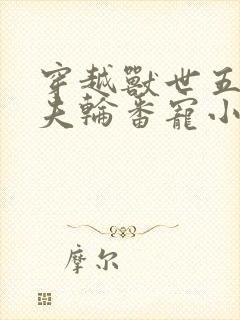 穿越獸世五
夫輪番寵小
摩尔